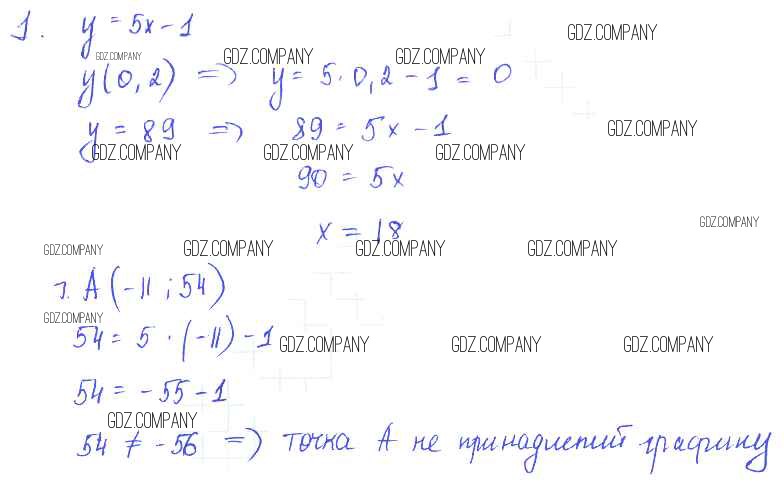 1. y = 5x - 1
GDZ.COMPANY
GDZ.COMPANY GDZ.COMPANY GDZ.COMPANY
y(0,2) => y = 5·0,2 - 1 = 0
GDZ.COMPANY
y = 89 => 89 = 5x - 1
GDZ.COMPANY GDZ.COMPANY GDZ.COMPANY
90 = 5x
GDZ.COMPANY
x = 18
GDZ.COMPANY GDZ.COMPANY GDZ.COMPANY GDZ.COMPANY
т. A (-11 ; 54)
GDZ.COMPANY
54 = 5 · (-11) - 1
GDZ.COMPANY GDZ.COMPANY GDZ.COMPANY
54 = - 55 - 1
GDZ.COMPANY
54 ≠ - 56 => точка A не принадлежит графику